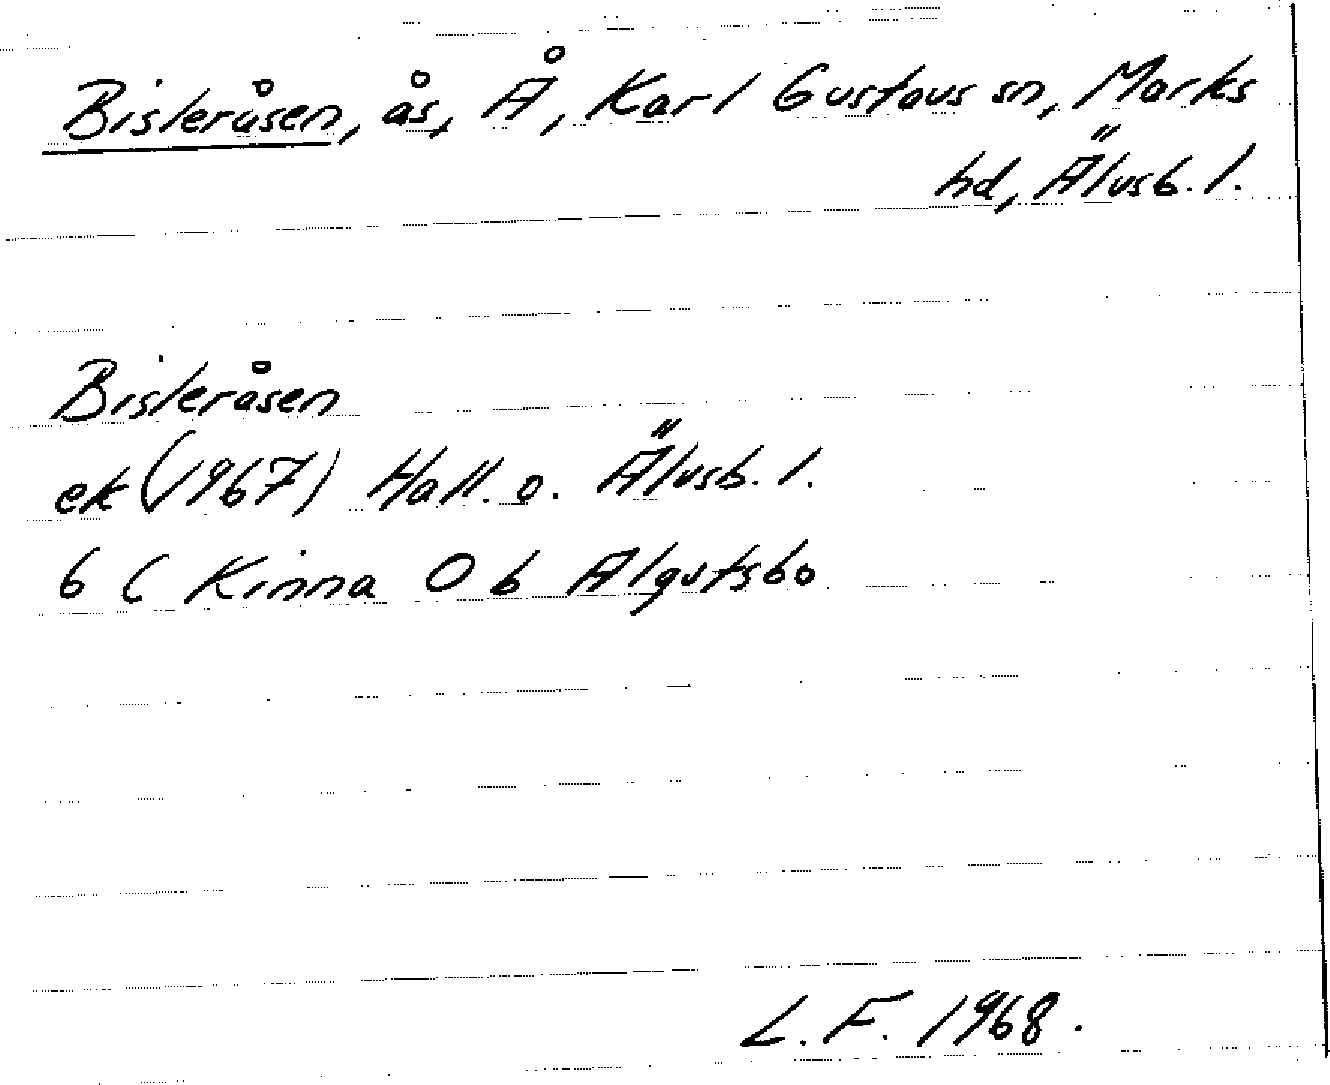 Bisleråsen, ås, Å, Karl Gustavs sn, Marks
hd, Älvsb. l.
Bisleråsen
ek (1967) Hall. o. Älvsb. l.
6 C Kinna O b Algutsbo
L. F. 1968.